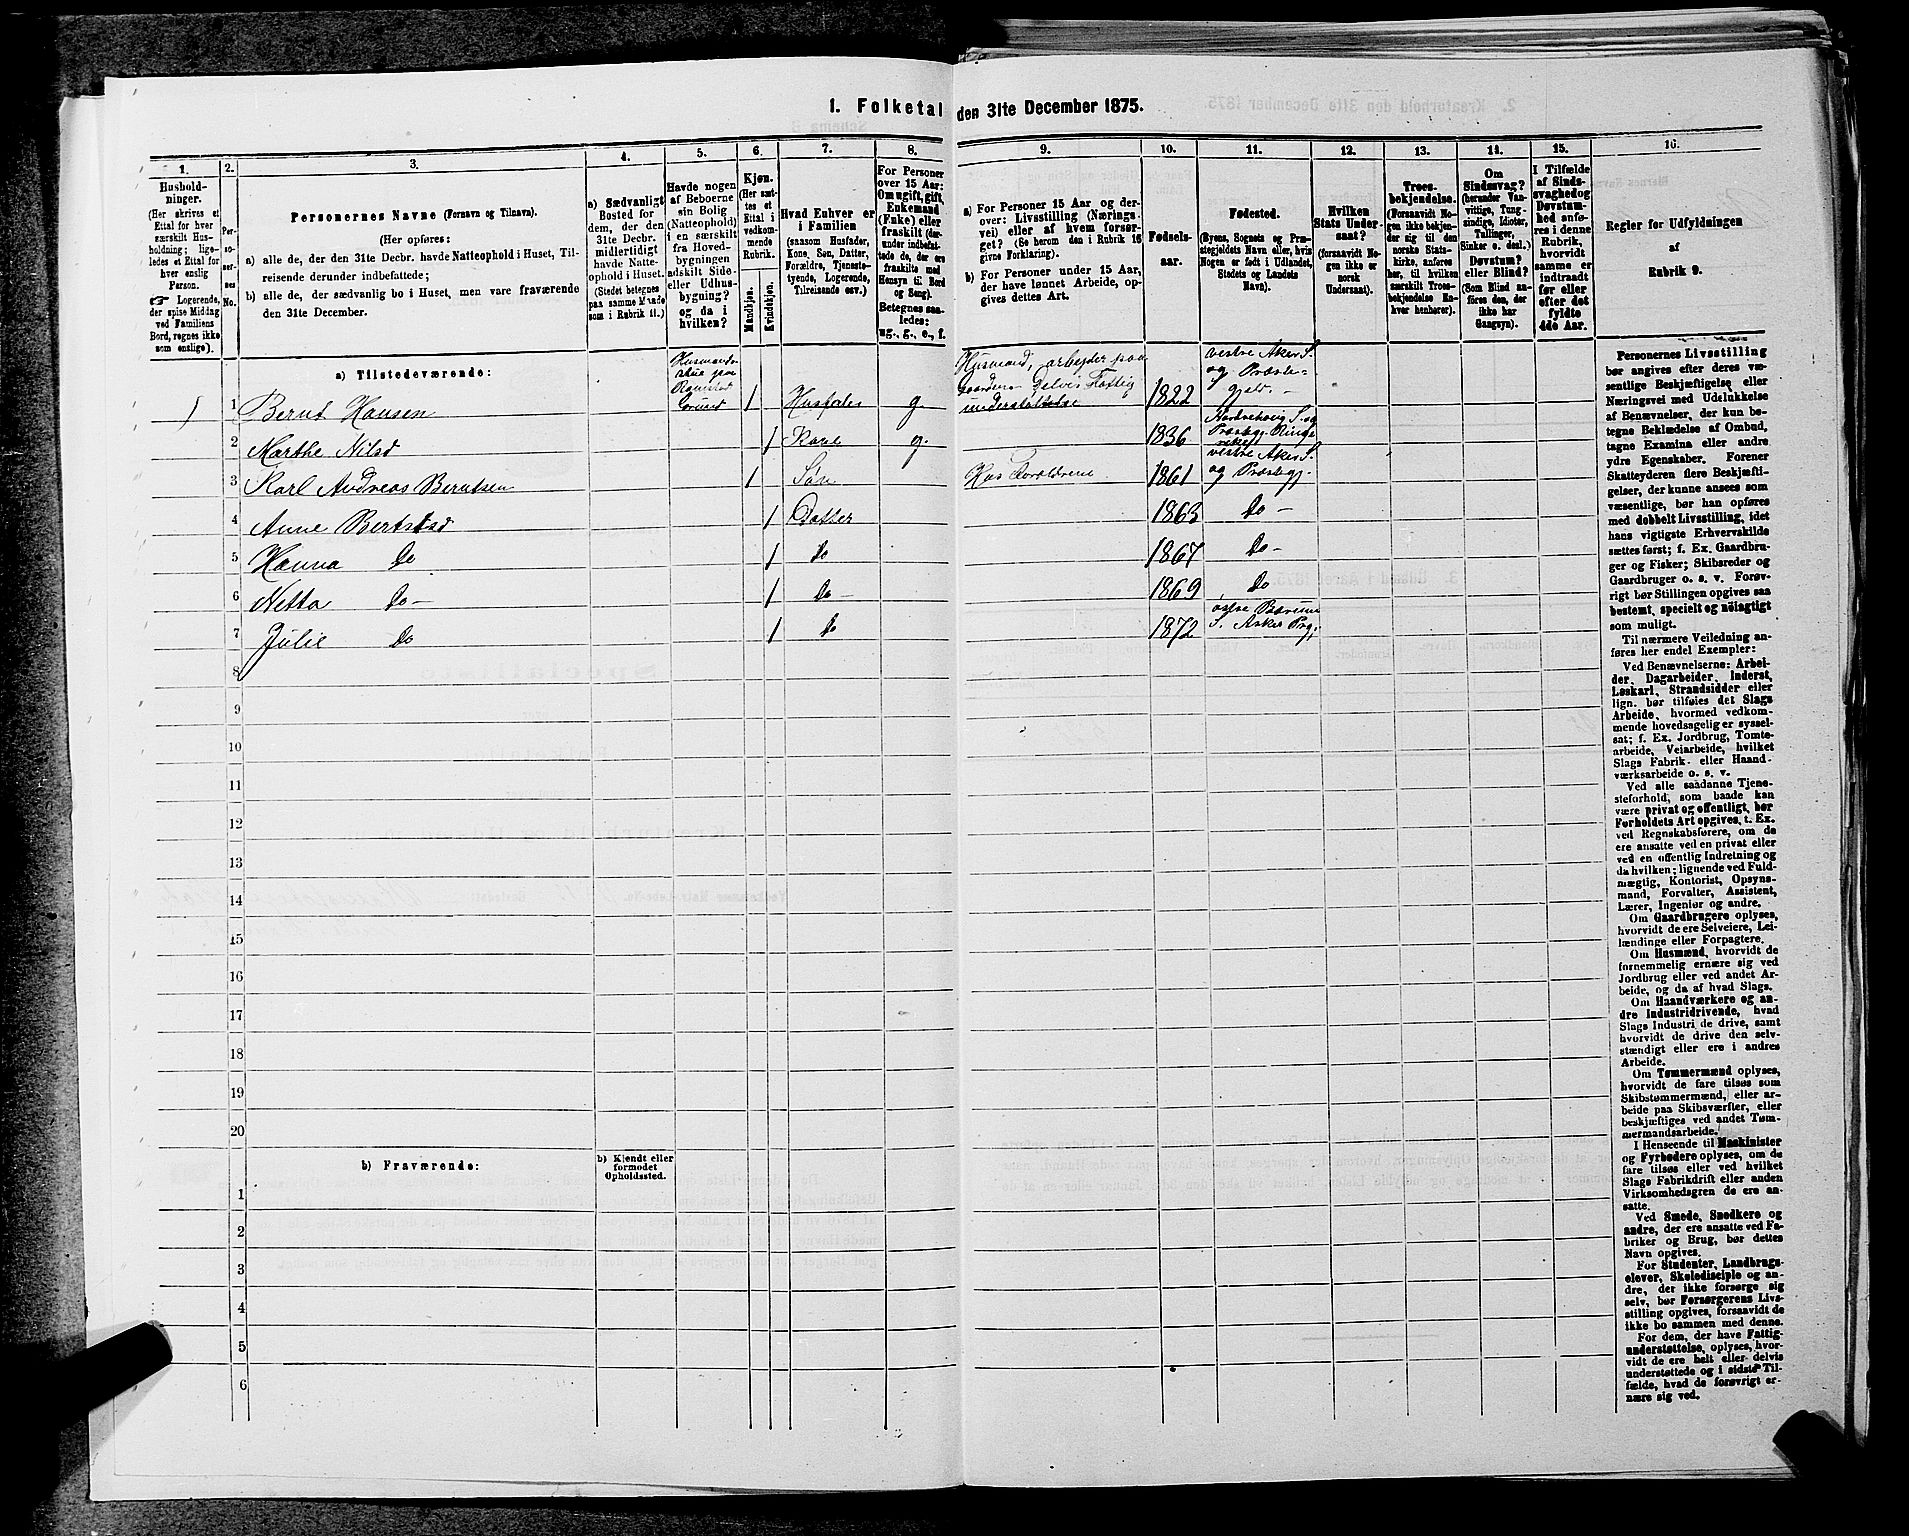 1. Folketal den 31te December 1875.
1.
2.
3.
4.
5.
6.
7.
8.
9.
10.
11.
12.
13.
14.
15.
16.
Hushold-
ninger.
(Her skrives et
Ettal for hver
særskilt Hus-
holdning; lige-
ledes et Ettal for
hver enslig
Person.
☞ Logerende,
der spise Middag
ved Familiens
Bord, regnes ikke
som enslige).
Per-
so-
ner-
nes
No.
Personernes Navne (Fornavn og Tilnavn).
(Her opføres:
a) alle de, der den 31te Decbr. havde Natteophold i Huset, Til-
reisende derunder indbefattede;
b) alle de, der sædvanlig bo i Huset, men vare fraværende
den 31te December.
a) Sædvanligt
Bosted for
dem, der den
31te Decbr.
midlertidigt
havde Natte-
ophold i Huset.
(Stedet betegnes
paa samme Maade
som i Rubrik 11.)
Havde nogen
af Beboerne
sin Bolig
(Natteophold)
i en særskilt
fra Hoved-
bygningen
adskilt Side-
eller Udhus-
bygning?
og da i
hvilken?
Kjøn.
(Her sæt-
tes et
Ettal i
vedkom-
mende
Rubrik.
Mandkjøn.
Kvindekjøn.
Hvad Enhver er
i Familien
(saasom Husfader,
Kone, Søn, Datter,
Forældre, Tjeneste-
tyende, Logerende,
Tilreisende osv.)
For Personer
over 15 Aar:
Om ugift, gift,
Enkemand
(Enke) eller
fraskilt (der-
under indbefat-
tede de, der ere
fraskilte med
Hensyn til Bord
og Seng).
Betegnes saa-
ledes:
ug., g., e., f.
a) For Personer 15 Aar og der-
over: Livsstilling (Nærings-
vei) eller af hvem forsør-
get? (Se herom den i Rubrik 16
givne Forklaring).
b) For Personer under 15 Aar,
der have lønnet Arbeide, op-
gives dettes Art.
Fødsels-
aar.
Fødested.
(Byens, Sognets og Præ-
stegjeldets Navn eller, hvis
Nogen er født i Udlandet,
Stedets og Landets
Navn).
Hvilken
Stats Under-
saat?
(forsaavidt No-
gen ikke er
norsk
Undersaat).
Troes-
bekjendelse.
(Forsaavidt No-
gen ikke bekjen-
der sig til den
norske Stats-
kirke, anføres
her, til hvilken
særskilt Troes-
bekjendelse En-
hver henhører).
Om
Sindssvag?
(herunder Van-
vittige, Tung-
sindige, Idioter,
Tullinger,
Sinker o. desl.)
Døvstum?
eller Blind?
(Som Blind an-
føres den, der
ikke har
Gangsyn).
I Tilfælde
af Sinds-
svaghed og
Døvstum-
hed anfø-
res i denne
Rubrik,
hvorvidt
samme er
indtraadt
før eller
efter det
fyldte
4de Aar.
Regler for Udfyldningen
af
Rubrik 9.
a) Tilstedeværende:
1 1 Bernt Hansen Husmands- stue paa Grund 1 Husfader g. Husmand, arbejder paa Gaarden. Delvis Fattig understøttelse 1822 vestre Aker S. og Præste- gjeld. -
2 Marthe Nilsd 1 Kone g. 1836 Nordrehoug S. og Præstgj. Ringe- rike
3 Karl Andreas Berntsen 1 Søn Hos Forældrene 1861 vestre Aker S. og Præstegj.
4 Anne Berntsd 1 Datter 1863 Do -
5 Hanna Do 1 Do 1867 Do -
6 Netta Do - 1 Do - 1869 Do
7 Julie Do 1 Do 1872 østre Bærum S. Asker Prg.
8
9
10
11
12
13
14
15
16
17
18
19
20
b) Fraværende:
b) Kjendt eller
formodet
Opholdssted.
1
2
3
4
5
6
Personernes Livsstilling
bør angives efter deres væ-
sentlige Beskjæftigelse eller
Næringsvei med Udelukkelse
af Benævnelser, der kun be-
tegne Beklædelse af Ombud,
tagne Examina eller andre
ydre Egenskaber. Forener
Skatteyderen flere Beskjæfti-
gelser, der kunne ansees som
væsentlige, bør han opføres
med dobbelt Livsstilling, idet
hans vigtigste Erhvervskilde
sættes først; f. Ex. Gaardbru-
ger og Fisker; Skibsreder og
Gaardbruger o. s. v. Forøv-
rigt bør Stillingen opgives saa
bestemt, specielt og nöiagtigt
som muligt.
Til nærmere Veiledning an-
føres her endel Exempler:
Ved Benævnelserne: Arbei-
der, Dagarbeider, Inderst,
Løskarl, Strandsidder eller
lign. bør tilføies det Slags
Arbeide, hvormed vedkom-
mende hovedsagelig er syssel-
sat; f. Ex. Jordbrug, Tomte-
arbeide, Veiarbeide, hvilket
Slags Fabrik- eller Haand-
værksarbeide o. s. v.
Ved alle saadanne Tjene-
steforhold, som baade kan
være privat og offentligt, bør
Forholdets Art opgives, t. Ex.
ved Regnskabsførere, om de
ere ansatte ved en privat eller
ved en offentlig Indretning og
da hvilken; lignende ved Fuld-
mægtig, Kontorist, Opsyns-
mand, Forvalter, Assistent,
Lærer, Ingeniør og andre.
Om Gaardbrugere oplyses,
hvorvidt de ere Selveiere, Lei-
lændinge eller Forpagtere.
Om Husmænd, hvorvidt de
fornemmelig ernære sig ved
Jordbrug eller ved andet Ar-
beide, og da af hvad Slags.
Om Haandværkere og an-
dre Industridrivende, hvad
Slags Industri de drive, samt
hvorvidt de drive den selv-
stændigt eller ere i andres
Arbeide.
Om Tømmermænd oplyses,
hvorvidt de fare tilsøs som
Skibstømmermænd, eller ar-
beide paa Skibsværfter, eller
beskjæftiges ved andet Tøm-
mermandsarbeide.
I Henseende til Maskinister
og Fyrbødere oplyses, om de
fare tilsøs eller ved hvilket
Slags Fabrikdrift eller anden
Virksomhedsgren de ere an-
satte.
Ved Smede, Snedkere og
andre, der ere ansatte ved Fa-
briker og Brug, bør dettes
Navn opgives.
For Studenter, Landbrugs-
elever, Skoledisciple og an-
dre, der ikke forsørge sig
selv, bør Forsørgerens Livs-
stilling opgives, forsaavidt de
ikke bo sammen med denne.
For dem, der have Fattig-
understøttelse, oplyses, hvor-
vidt de ere helt eller delvis
understøttede og i sidste Til-
fælde, hvad de forøvrigt er-
nære sig ved.